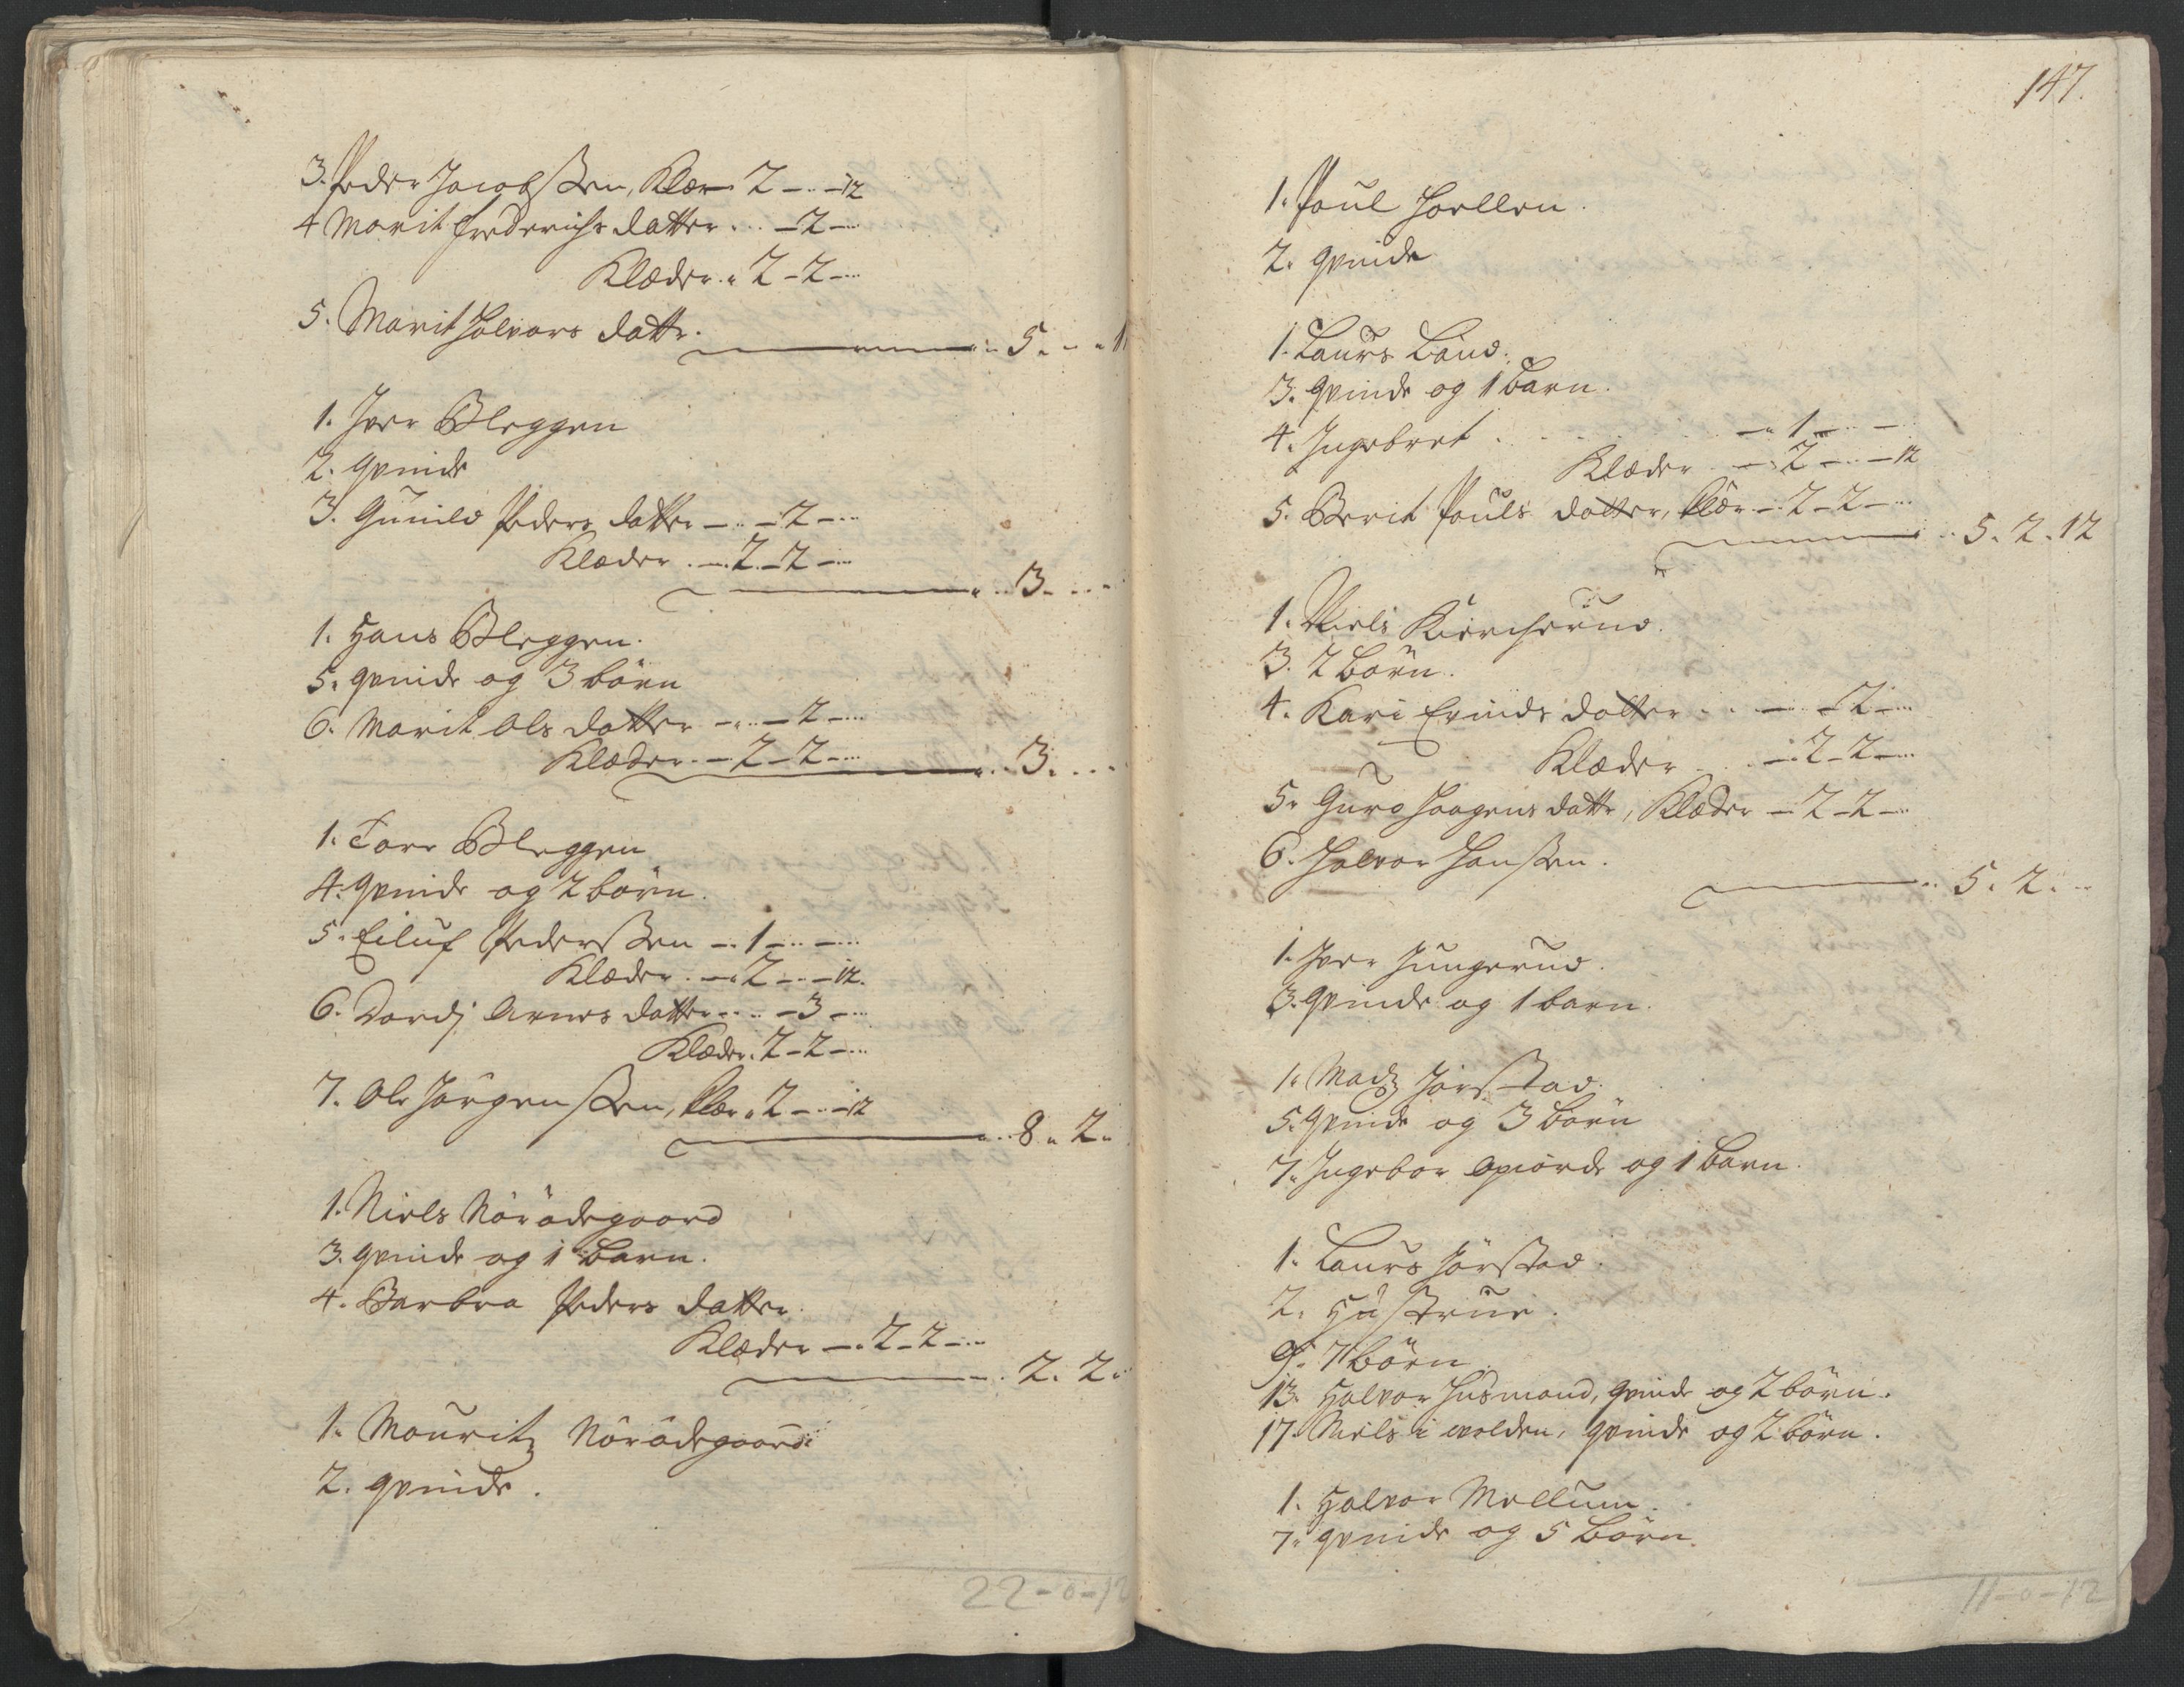 3. Peder Jacobssen, Klær 2 - .. - 12
4 Marit Frederichs datter ... - 2 - ...
Klæder .. 2 - 2 - ...
5. Marit Halvors datr.
5. - - 1
1. Iver Bleggen
2. Qvinde
3. Gunild Peders datter - .. - 2 - ...
Klæder . - .. 2 - 2 - ...
3. ...
1. Hans Bleggen.
5. qvinde og 3 börn
6. Marit Ols datter - .. - 2 - ...
Klæder . - .. 2 - 2 - ...
3. ...
1. Tore Bleggen
4. Qvinde og 2 börn.
5. Eiluf Pederssen - .. 1 - .. - ...
Klæder . - .. 2 - .. - 12.
6. Dordj Arnes datter - .. - 3 - ...
Klæder .. 2 - 2 - ...
7. Ole Jörgenssen, Klær .. 2 - .. - 12
8 .. 2 ..
1. Niels Nörödegaard
3. qvinde og 1 Barn.
4. Barbra Peders datter.
Klæder - .. 2 - 2 - ...
2. 2.
1. Mouritz Nörödegaard
2. qvinde.
22-0-12
147.
1. Poul Hoellen.
2. qvinde
1. Laurs Lund.
3. Qvinde og 1 Barn.
4. Ingebret . . . - .. 1 - .. -
Klæder - .. 2 - .. - 12
5. Berit Pouls datter, klær - .. 2 - 2 - ...
5. 2. 12
1. Niels Kircherud.
3. 2 Börn.
4. Kari Evinds datter . . - .. - 2 - ...
Klæder . . - .. 2 - 2 - ...
5. Guro Haagens datr, Klæder - .. 2 - 2 - ..
6. Halvor Hanssen.
5. 2. ..
1. Iver Jungerud.
3. Qvinde og 1 barn.
1. Madz Jörstad.
5. Qvinde og 3 Börn
7. Ingebor og 1 Barn.
1. Laurs Jörstad.
2. Hustrue.
9. 7 Börn.
13. Halvor Husmand, qvinde og 2 börn.
17. Niels i wolden, qvinde og 2 börn.
1. Halvor Mellum.
7. qvinde og 5 Börn.
11-0-12